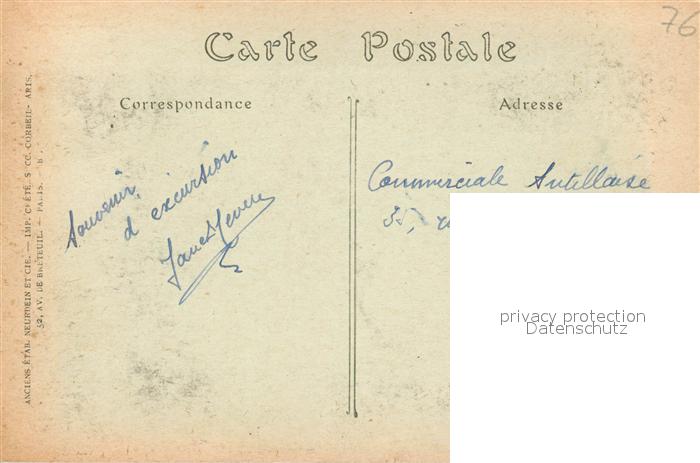 76
Carte Postale
Correspondance
Adresse
Souvenir
d'excursion
Commerciale Antillaise
35,
privacy protection
Datenschutz
ANCIENS ÉTAB. NEURDEIN ET CIE. — IMP. CRÉTÉ, SUCC. CORBEIL-
52, AV. DE BRETEUIL. — PARIS.